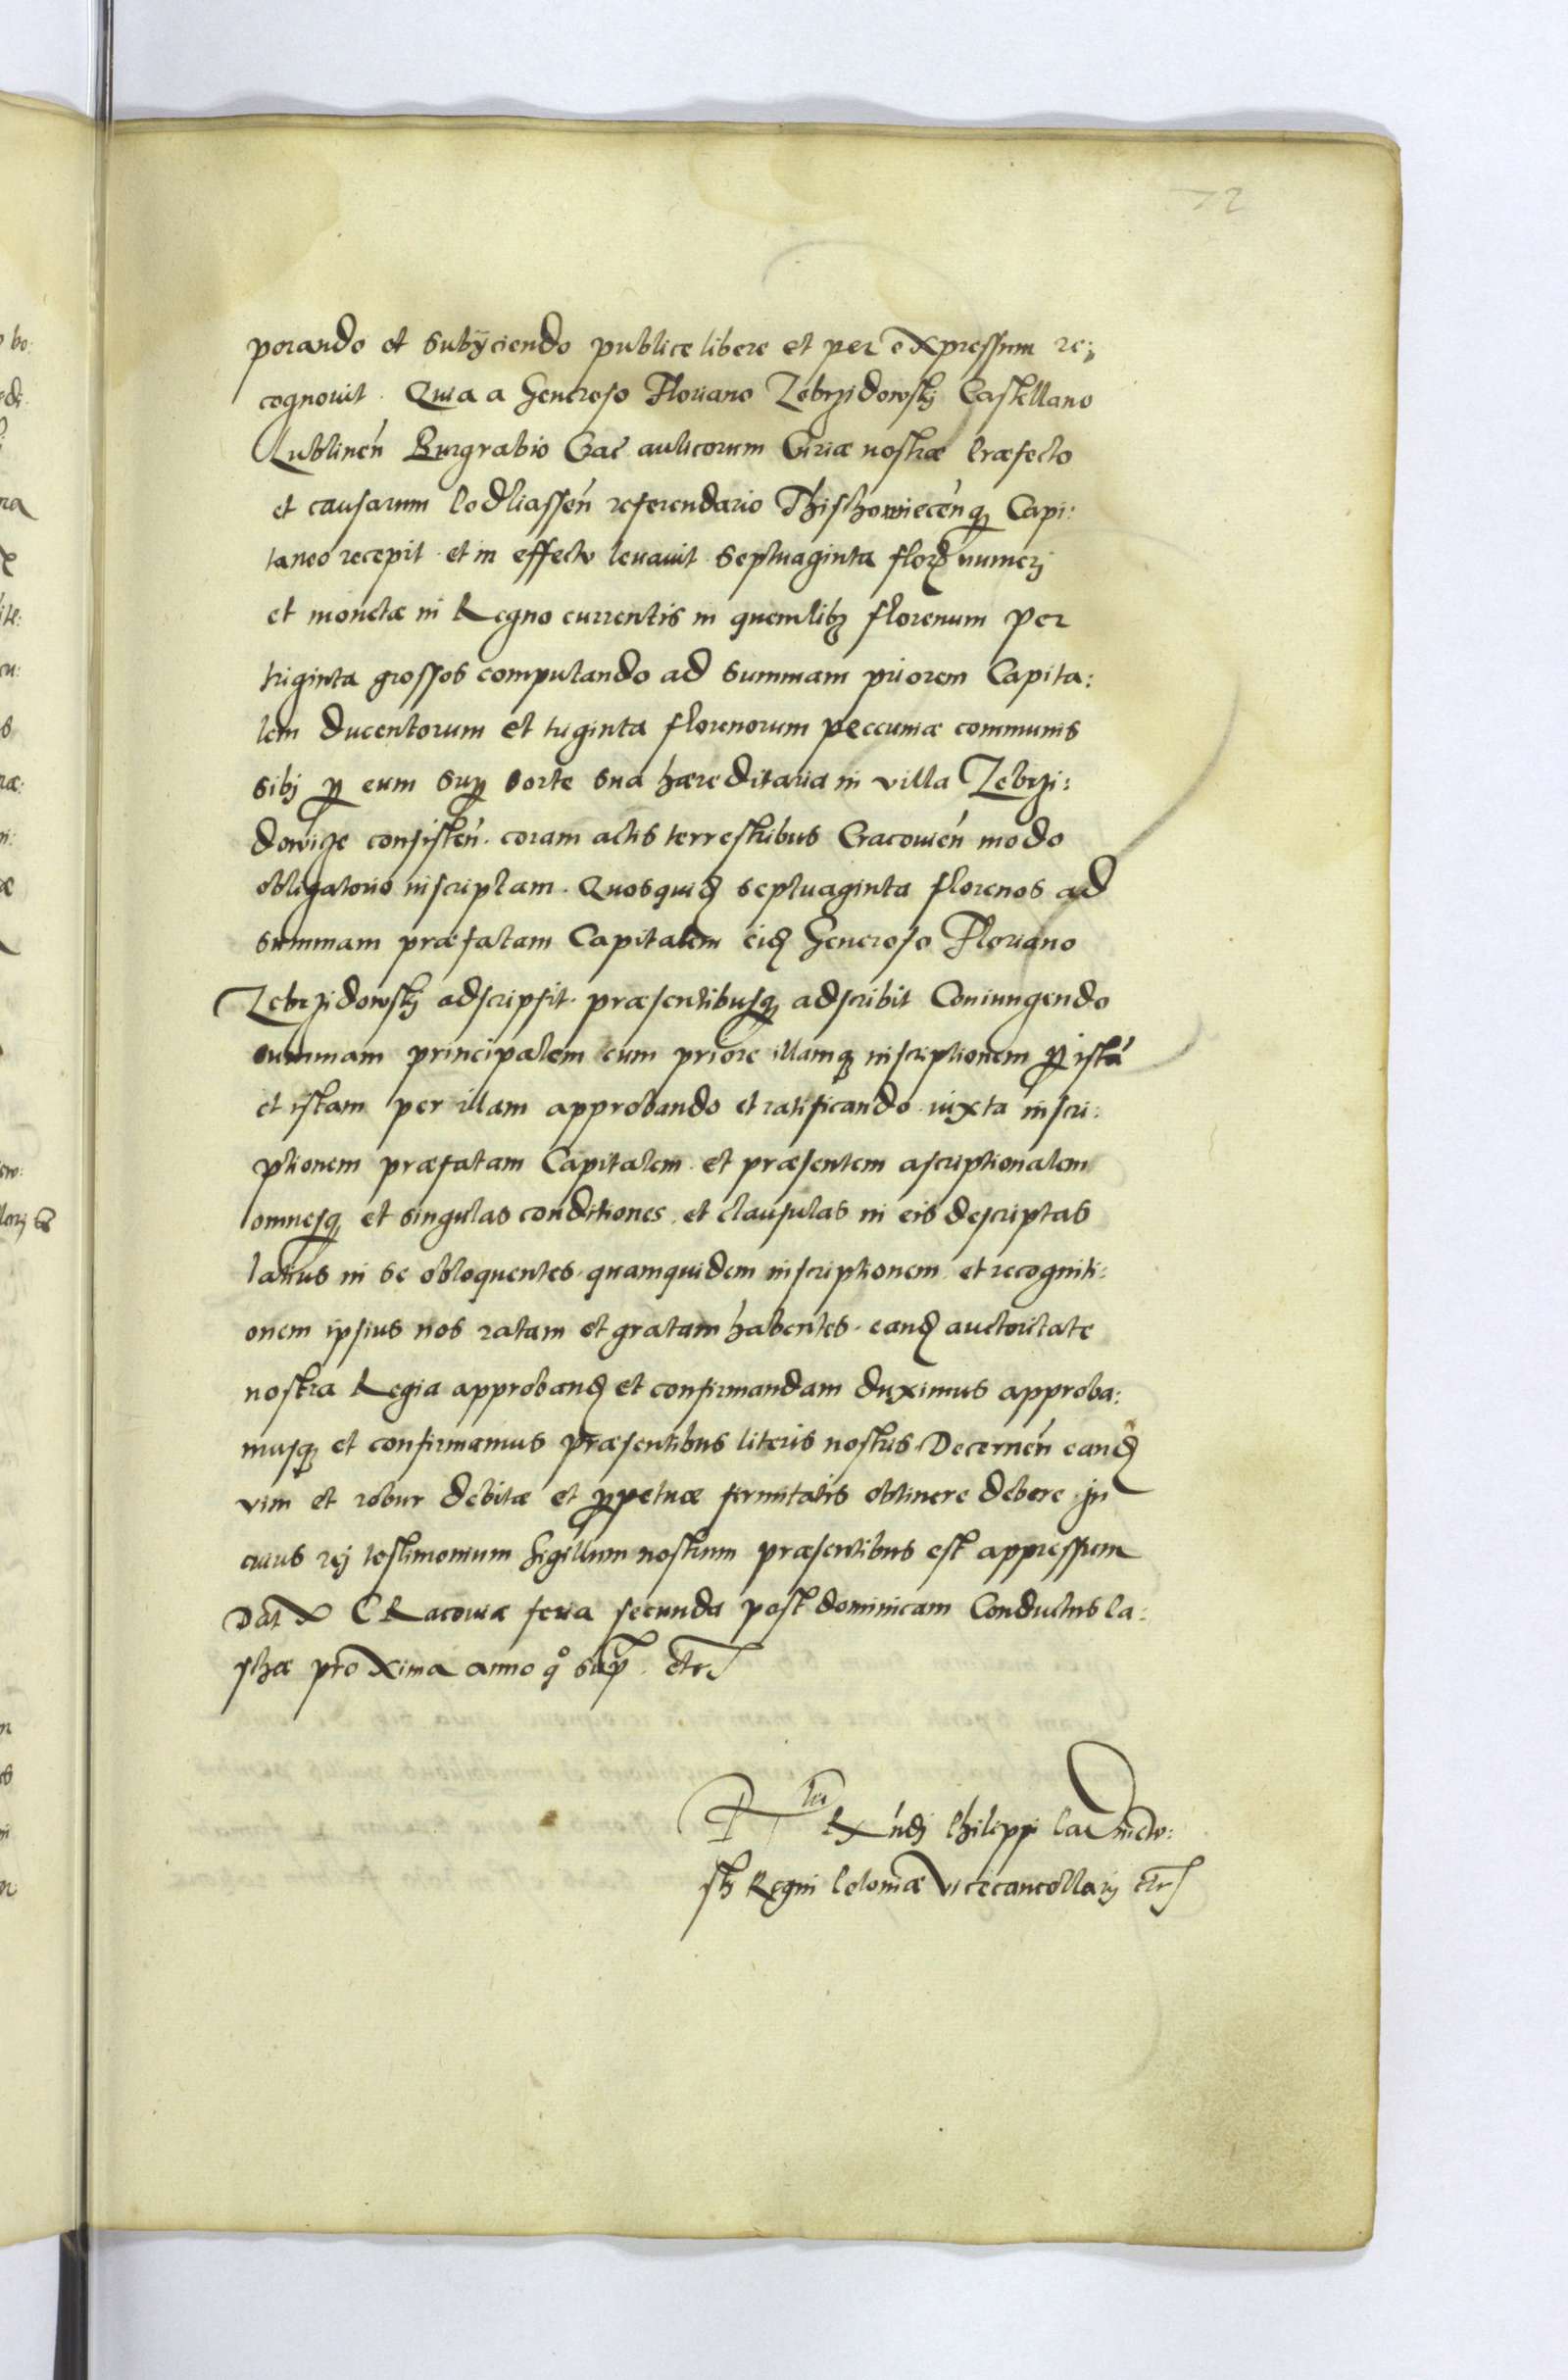 72
porando et subÿciendo publice libere et per expressum re:
cognovit. Quia a Generoso Floriano Zebrzidowskj Castellano
Lublinen̄ Burgrabio Crac̄ aulicorum Curiæ nostræ Præfecto
et causarum Podliassen̄ referendario Thischowiecen̄q̢ Capi:
taneo recepit et in effectu levavit septuaginta flor̄ numerj
et monetæ in Regno currentis in quemlibꝫ florenum per
triginta grossos computando ad summam priorem Capita:
lem ducentorum et triginta florenorum peccuniæ communis
sibj ꝑ eum suꝑ sorte sua hæreditaria in villa Zebrzi:
dowice consisten̄. coram actis terrestribus Cracovien̄ modo
obligatorio inscriptam. Quosquid̄ septuaginta florenos ad
summam præfatam Capitalem eid̄ Generoso Floriano
Zebrzidowskj adscripsit. præsentibusq̢ adscribit Coniungendo
summam principalem cum priore illamq̢ inscriptionem ꝑ istā
et istam per illam approbando et ratificando iuxta inscri:
ptionem præfatam Capitalem et præsentem ascriptionalem
omnesq̢ et singulas conditiones et clausulas in eis descriptas
latius in se obloquentes. quamquidem inscriptionem et recogniti:
onem ipsius nos ratam et gratam habentes. eand̄ auctoritate
nostra Regia approband̄ et confirmandam duximus approba:
musq̢ et confirmamus præsentibus literis nostris. Decernen̄ eand̄
vim et robur debitæ et ꝑpetuæ firmitatis obtinere debere. In
cuius rej testimonium Sigillum nostrum præsentibus est appressum
Dat̄ CRacoviæ feria secunda post dominicam Conductus Pa:
schæ proxima anno q̊ sup̄. etc̄
R̄tio Rn̄dj Philippi Padniew:
skj Regni Poloniæ Vicecancellarij etc̄